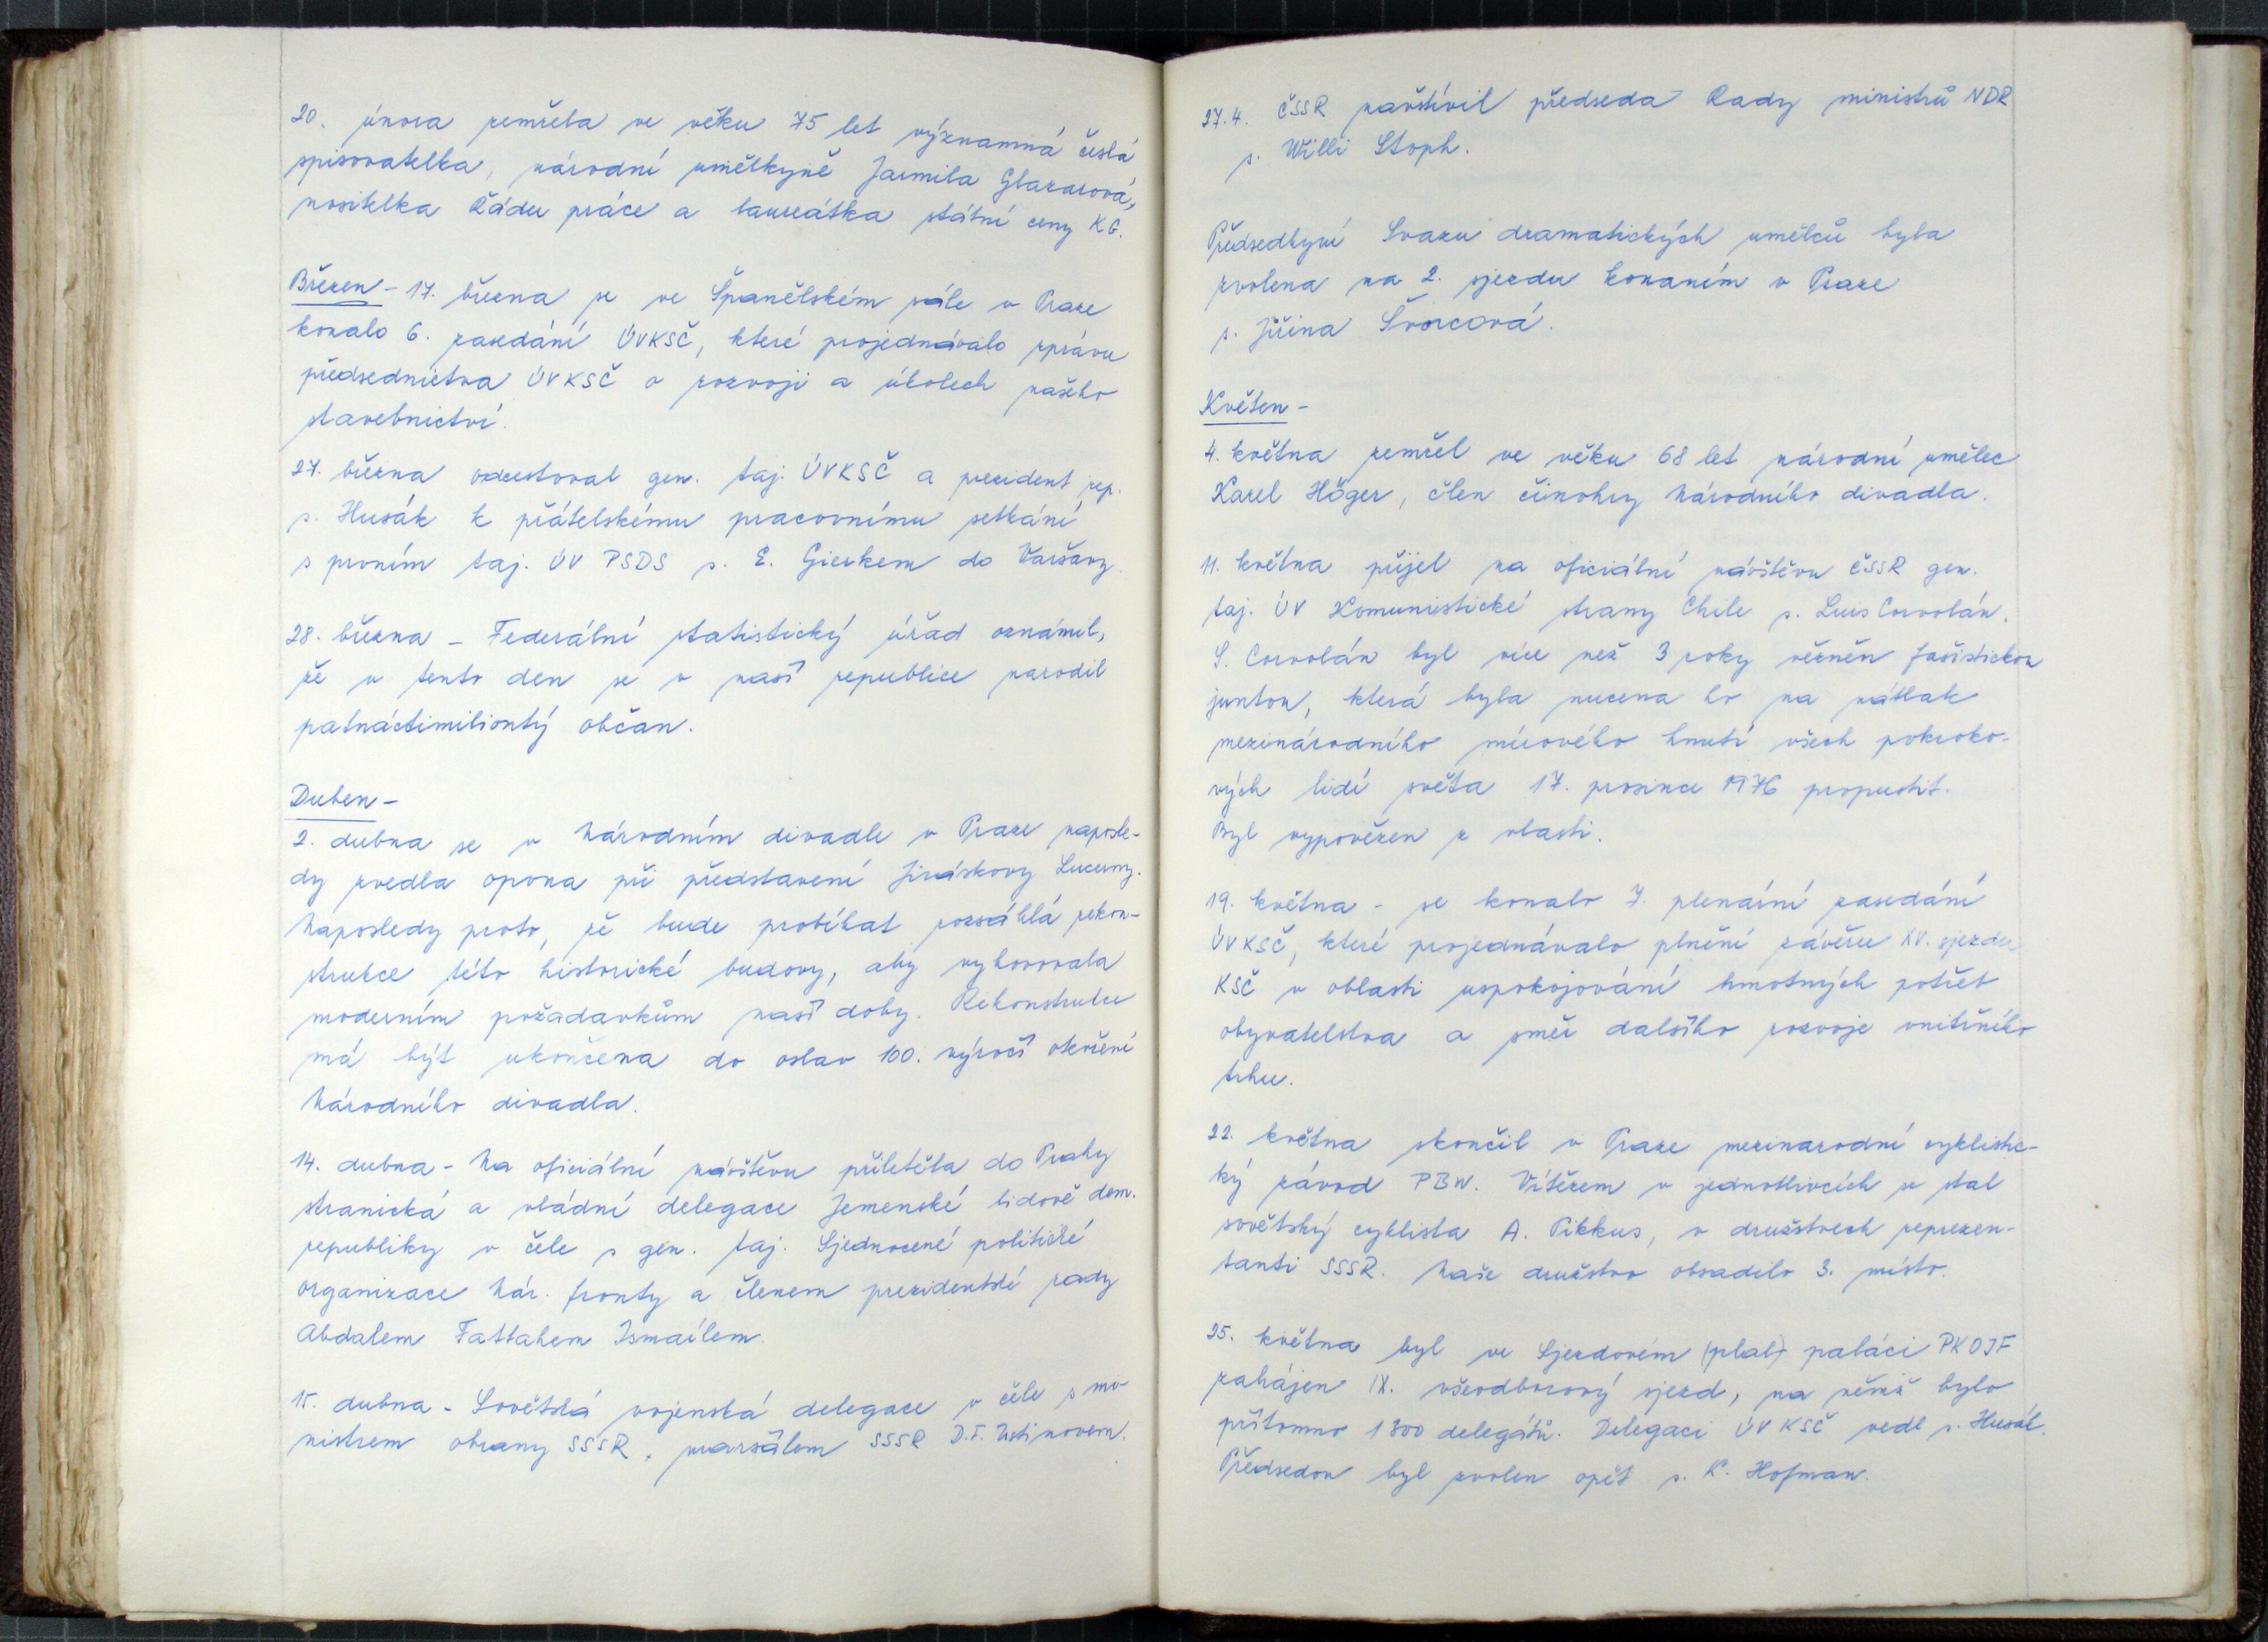 20. února zemřela ve věku 75 let významná česká
spisovatelka, národní umělkyně Jarmila Glazarová,
nositelka Řádu práce a laureátka státní ceny KG.
Březen - 17. března se ve Španělském sále v Praze
konalo 6. zasedání ÚVKSČ, které projednávalo zprávu
předsednictva ÚVKSČ o rozvoji a úkolech našeho
stavebnictví.
27. března odcestoval gen. taj. ÚVKSČ a prezident rep.
s. Husák k přátelskému pracovnímu setkání
s prvním taj. ÚV PSDS s. E. Gierkem do Varšavy.
28. března - Federální statistický úřad oznámil,
že v tento den se v naší republice narodil
patnáctimiliontý občan.
Duben -
2. dubna se v Národním divadle v Praze naposle-
dy zvedla opona při představení Jiráskovy Lucerny.
Naposledy proto, že bude probíhat rozsáhlá rekon-
strukce této historické budovy, aby vyhovovala
moderním požadavkům naší doby. Rekonstrukce
má být ukončena do oslav 100. výročí otevření
Národního divadla.
14. dubna - Na oficiální návštěvu přiletěla do Prahy
stranická a vládní delegace Jemenské lidově dem.
republiky v čele s gen. taj. Sjednocené politické
organizace Nár. fronty a členem prezidentské rady
Abdalem Fattahem Ismaílem.
15. dubna - Sovětská vojenská delegace v čele s mi-
nistrem obrany SSSR, maršálem SSSR D.F. Ustinovem.
27.4. ČSSR navštívil předseda Rady ministrů NDR
s. Willi Stoph.
Předsedkyní Svazu dramatických umělců byla
zvolena na 2. sjezdu konaném v Praze
s. Jiřina Švorcová.
Květen -
4. května zemřel ve věku 68 let národní umělec
Karel Höger, člen činohry Národního divadla.
11. května přijel na oficiální návštěvu ČSSR gen.
taj. ÚV Komunistické strany Chile s. Luis Corvolán.
S. Corvolán byl více než 3 roky vězněn fašistickou
juntou, která byla nucena ho na nátlak
mezinárodního mírového hnutí všech pokroko-
vých lidí světa 17. prosince 1976 propustit.
Byl vypovězen z vlasti.
19. května - se konalo 7. plenární zasedání
ÚVKSČ, které projednávalo plnění závěru XV. sjezdu
KSČ v oblasti uspokojování hmotných potřeb
obyvatelstva a směr dalšího rozvoje vnitřního
trhu.
22. května skončil v Praze mezinarodní cyklistic-
ký závod PBW. Vítězem v jednotlivcích se stal
sovětský cyklista A. Pikkus, v družstvech reprezen-
tanti SSSR. Naše družstvo obsadilo 3. místo.
25. května byl ve Sjezdovém (plal) paláci PKOJF
zahájen IX. všeodborový sjezd, na němž bylo
přítomno 1300 delegátů. Delegaci ÚV KSČ vedl s. Husák.
Předsedou byl zvolen opět s. K. Hofman.